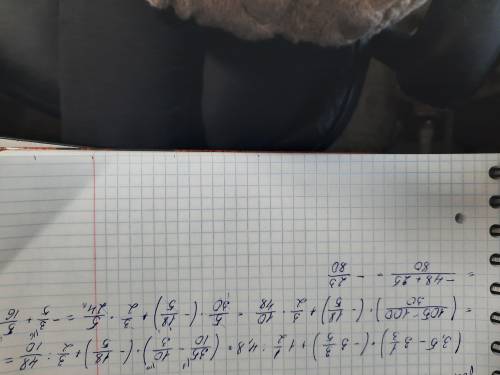 (3,5 - 3 1/3) · (-3 3/5) + 1 1/2 : 4,8 = (35/10 - 10/3) · (-18/5) + 3/2 : 48/10 =
= (105-100/30) · (-18/5) + 3/2 · 10/48 = 5/30 · (-18/5) + 3/2 · 5/24 = -3/5 + 5/16
= -48+25/80 = -23/80